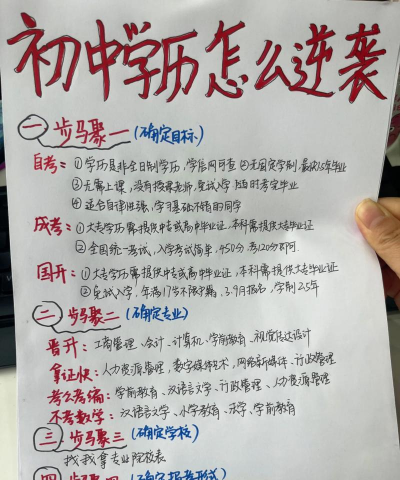 初中学历怎么逆袭
一 步骤一 (确定目标)
自考：①学历是非全日制学历，学信网可查 ②无固定学制，最快1.5年毕业
③无需上课，没有授课老师，免试入学 随时考完毕业
④适合自律性强，学习基础不错的同学
成考：①大专学历需提供中专或高中毕业证，本科需提供大专毕业证
②全国统一考试，入学考试简单，450分考120分即可
国开：①大专学历需提供中专或高中毕业证，本科需提供大专毕业证
②免试入学，年满17岁不限户籍，3.9月报名，学制2.5年
二 步骤二 (确定专业)
晋升：工商管理、会计、计算机、学前教育、视觉传达设计
拿证快：人力资源管理，数字媒体艺术，网络新媒体、行政管理
考公考编：学前教育、汉语言文学、行政管理、人力资源管理
不考数学：汉语言文学、小学教育、法学、学前教育
三 步骤三 (确定学校)
找我拿专业院校表
四 步骤四 (确定报考形式)